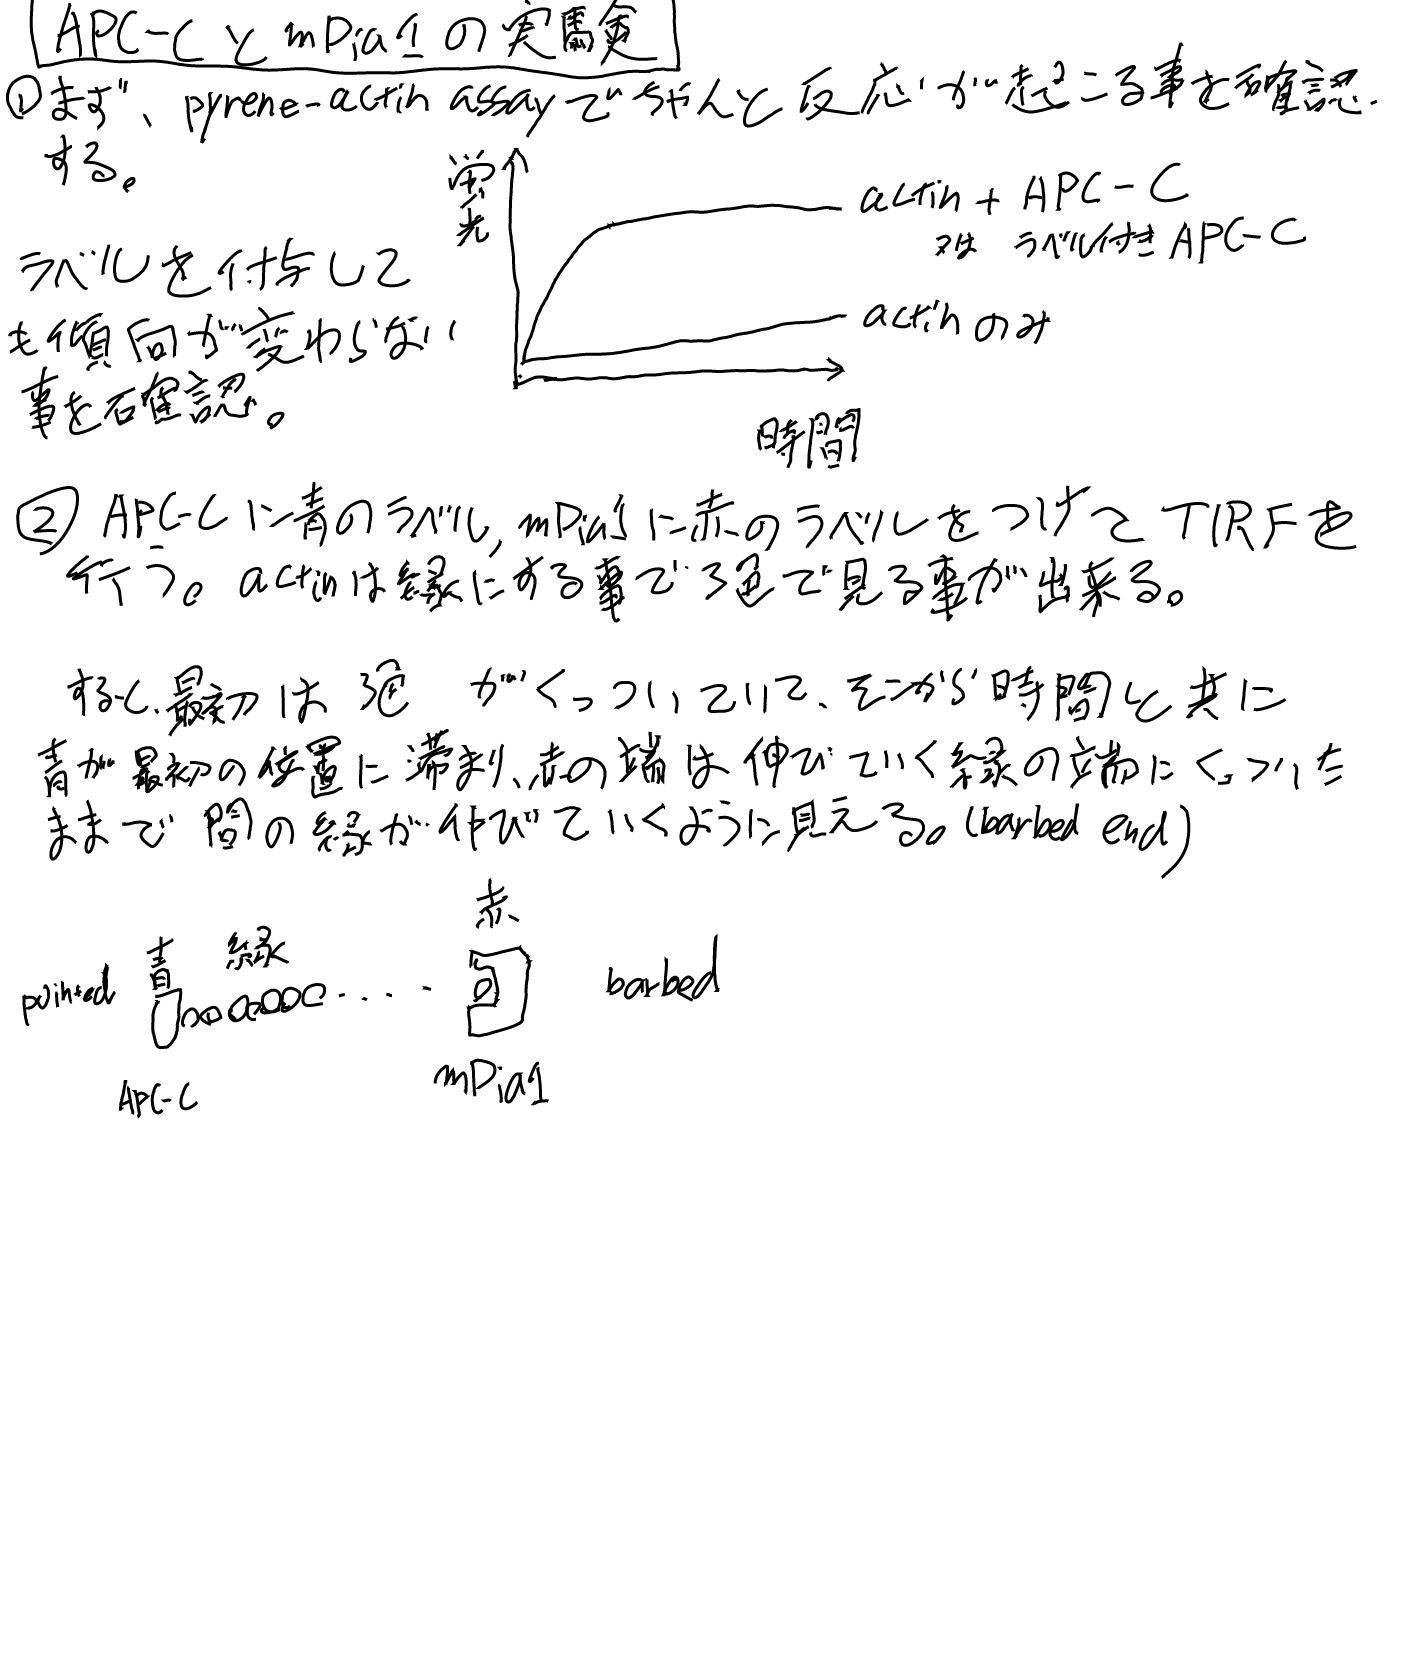 APC-CとmDia1の実験
①まず、pyrene-actin assayでちゃんと反応が起こる事を確認
する。
蛍光
actin + APC-C
又は ラベル付きAPC-C
actinのみ
時間
ラベルを付与して
も傾向が変わらない
事を確認。
② APC-Cに青のラベル, mDia1に赤のラベルをつけてTIRFを
行う。actinは緑にする事で3色で見る事が出来る。
すると、最初は3色がくっついていて、そこから時間と共に
青が最初の位置に滞まり、赤の端は伸びていく緑の端にくっついた
ままで間の緑が伸びていくように見える。(barbed end)
赤
青 緑
pointed
barbed
mDia1
APC-C